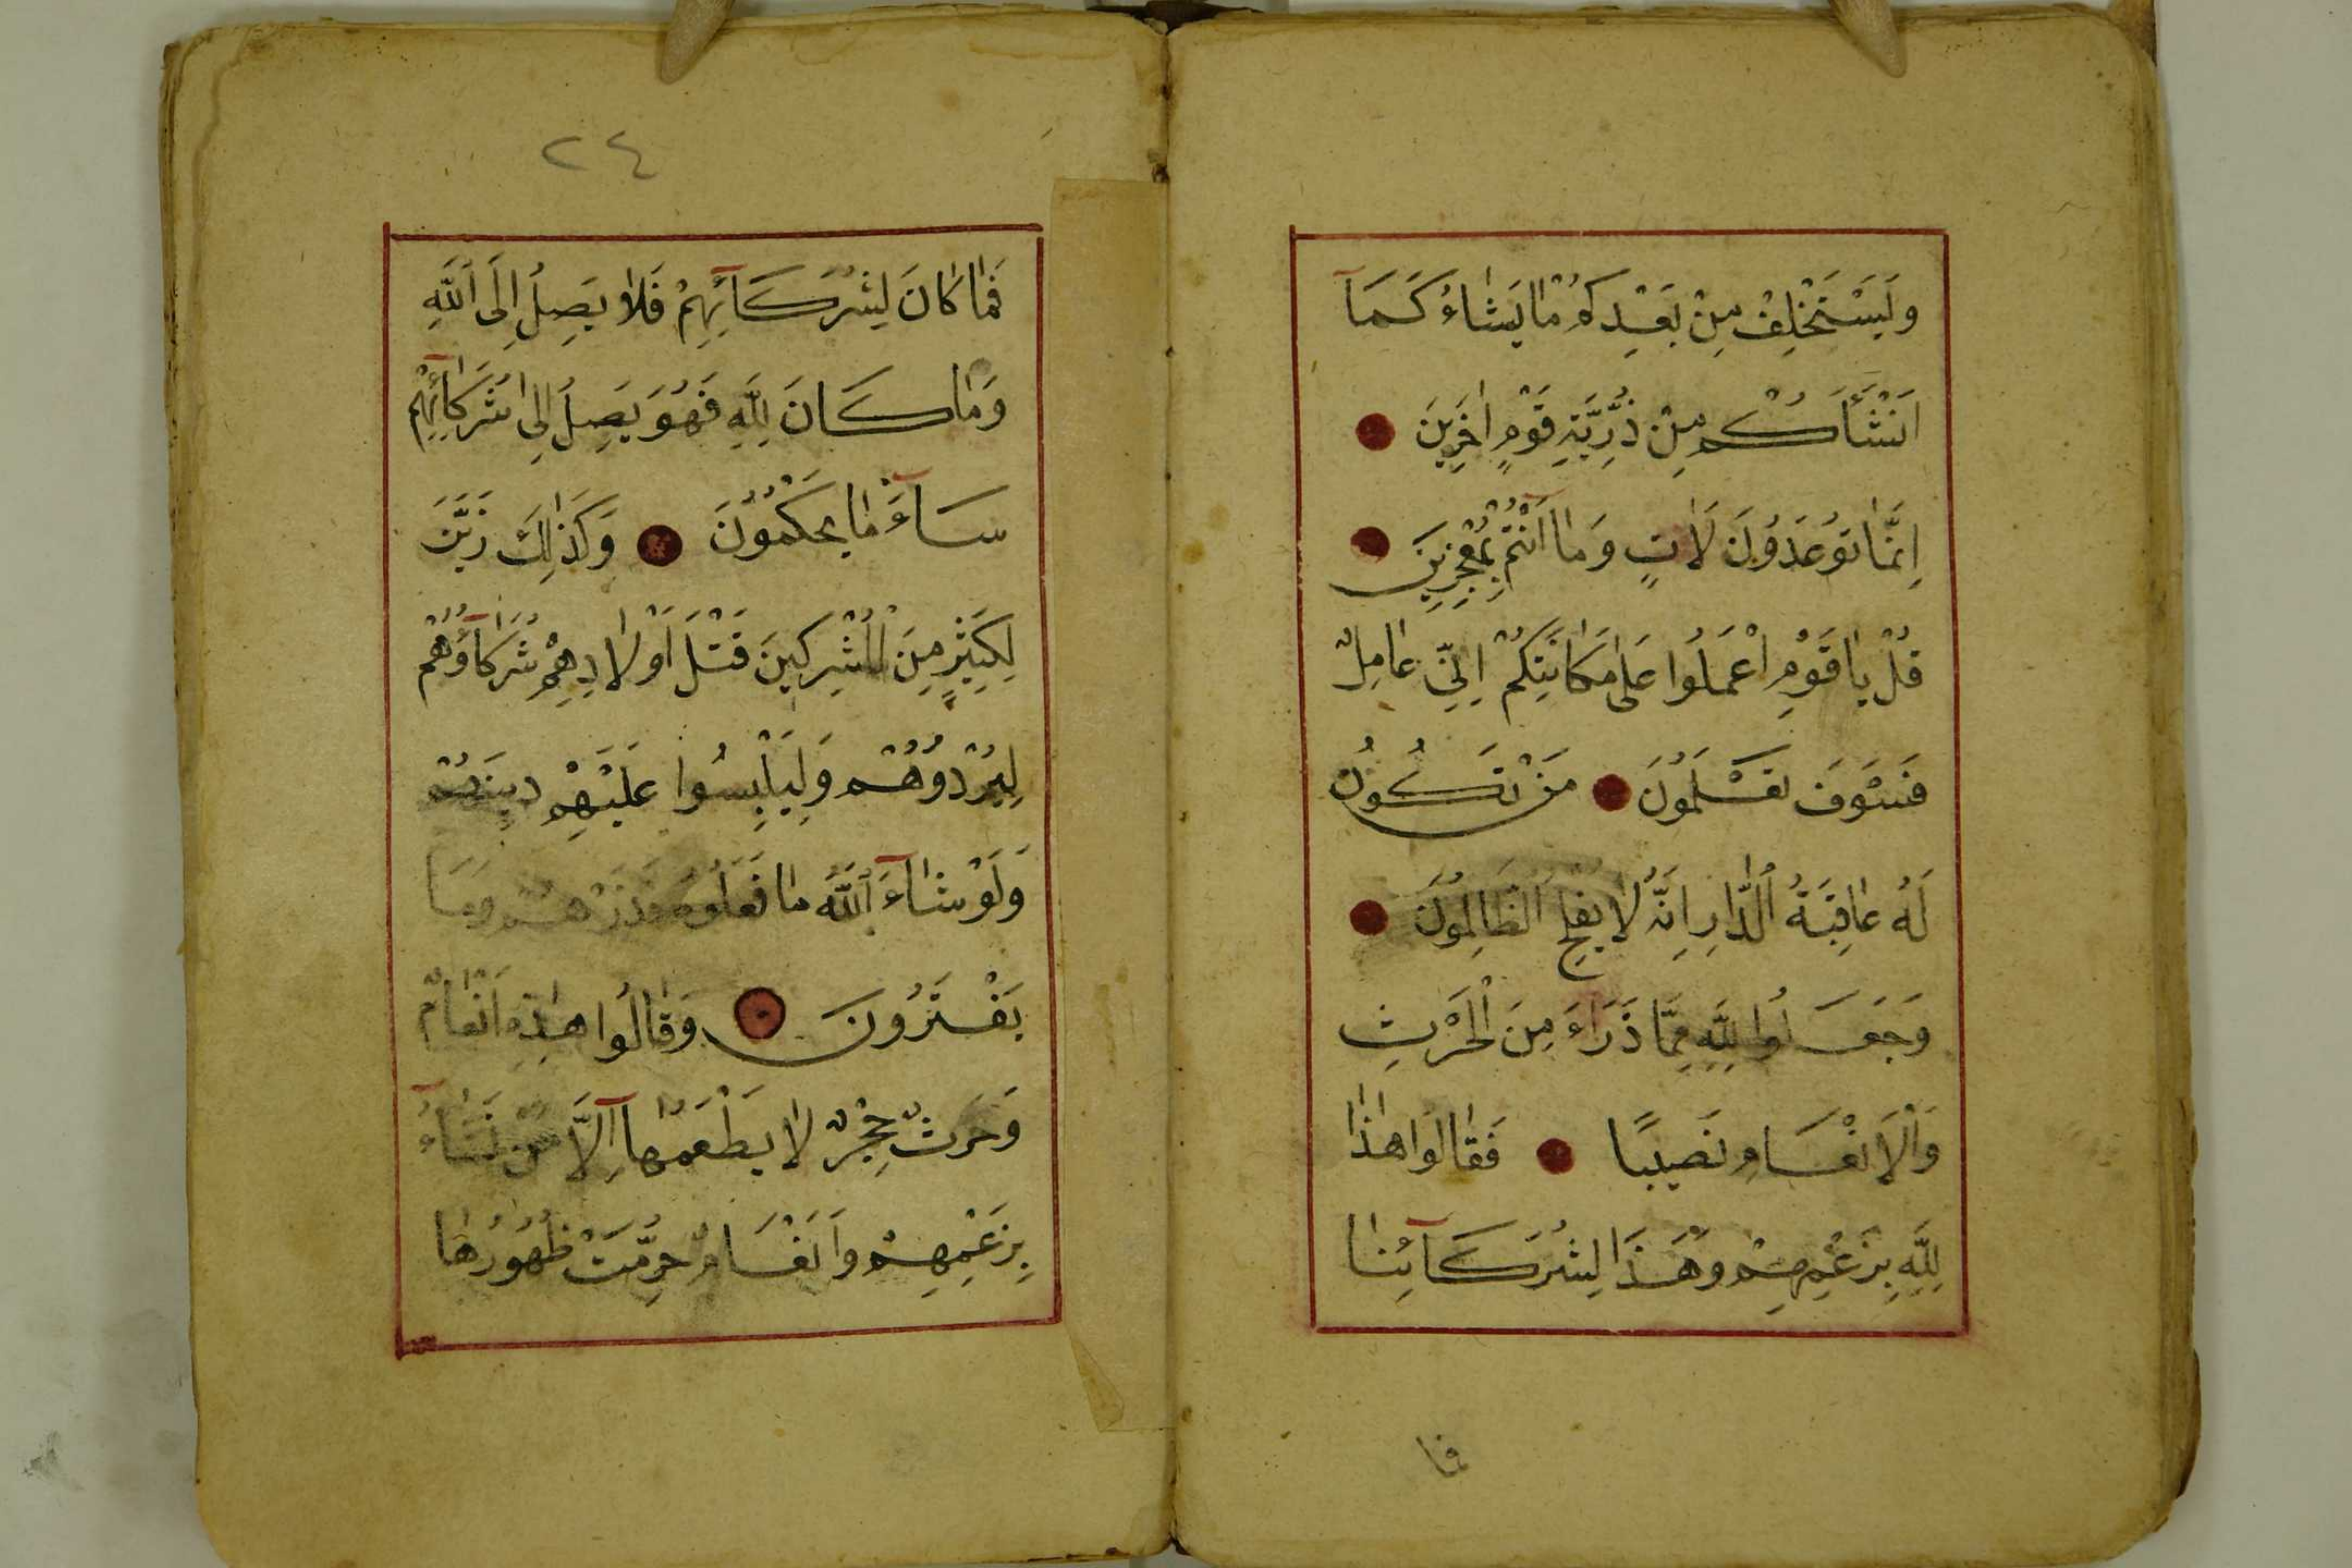 وَلَيَسْتَخْلِفْ مِنْ بَعْدِكُمْ مٰا يَشٰاءُ كَمَآ
اَنْشَأَكُمْ مِنْ ذُرِّيَّةِ قَوْمٍ اٰخَرِينَ
اِنَّمٰا تُوعَدُونَ لَاٰتٍ وَمٰا اَنْتُمْ بِمُعْجِزِينَ
قُلْ يٰا قَوْمِ اعْمَلُوا عَلىٰ مَكٰانَتِكُمْ اِنِّي عٰامِلٌ
فَسَوْفَ تَعْلَمُونَ مَنْ تَكُونُ
لَهُ عٰاقِبَةُ الدّٰارِ اِنَّهُ لٰا يُفْلِحُ الظَّالِمُونَ
وَجَعَلُوا لِلَّهِ مِمَّا ذَرَاَءَ مِنَ الْحَرْثِ
وَالْاَنْعَامِ نَصِيبًا فَقٰالُوا هٰذٰا
لِلَّهِ بِزَعْمِهِمْ وَهَذَا لِشُرَكَآئِنٰا
فمٰا
٢٤
فَمٰا كٰانَ لِشُرَكَآئِهِمْ فَلٰا يَصِلُ اِلَى اللّٰهِ
وَمٰا كَانَ لِلَّهِ فَهُوَ يَصِلُ اِلىٰ شُرَكٰآئِهِمْ
سَآءَ مٰا يَحْكُمُونَ وَكَذٰلِكَ زَيَّنَ
لِكَثِيرٍ مِنَ الْمُشْرِكِينَ قَتْلَ اَوْلٰادِهِمْ شُرَكٰآؤُهُمْ
لِيُرْدُوهُمْ وَلِيَلْبِسُوا عَلَيْهِمْ دِينَهُمْ
وَلَوْ شٰآءَ اللّٰهُ مٰا فَعَلُوهُ فَذَرْهُمْ وَمَا
يَفْتَرُونَ وَقٰالُوا هٰذِهِ اَنْعٰامٌ
وَحَرْثٌ حِجْرٌ لٰا يَطْعَمُهٰآ اِلَّا مَنْ نَشٰآءُ
بِزَعْمِهِمْ وَاَنْعَامٌ حُرِّمَتْ ظُهُورُهٰا